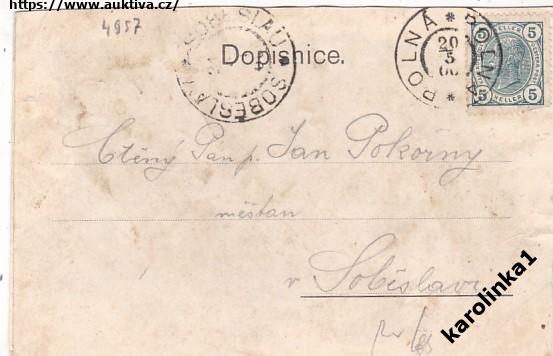 https://www.auktiva.cz/
4957
Dopisnice.
SOBĚSLAU * SOBĚSLAV
POLNÁ * POLNA *
20
5
5 HELLER 5
Ctěný Pan p. Jan Pokorný
měštan
v Soběslavi
karolinka1